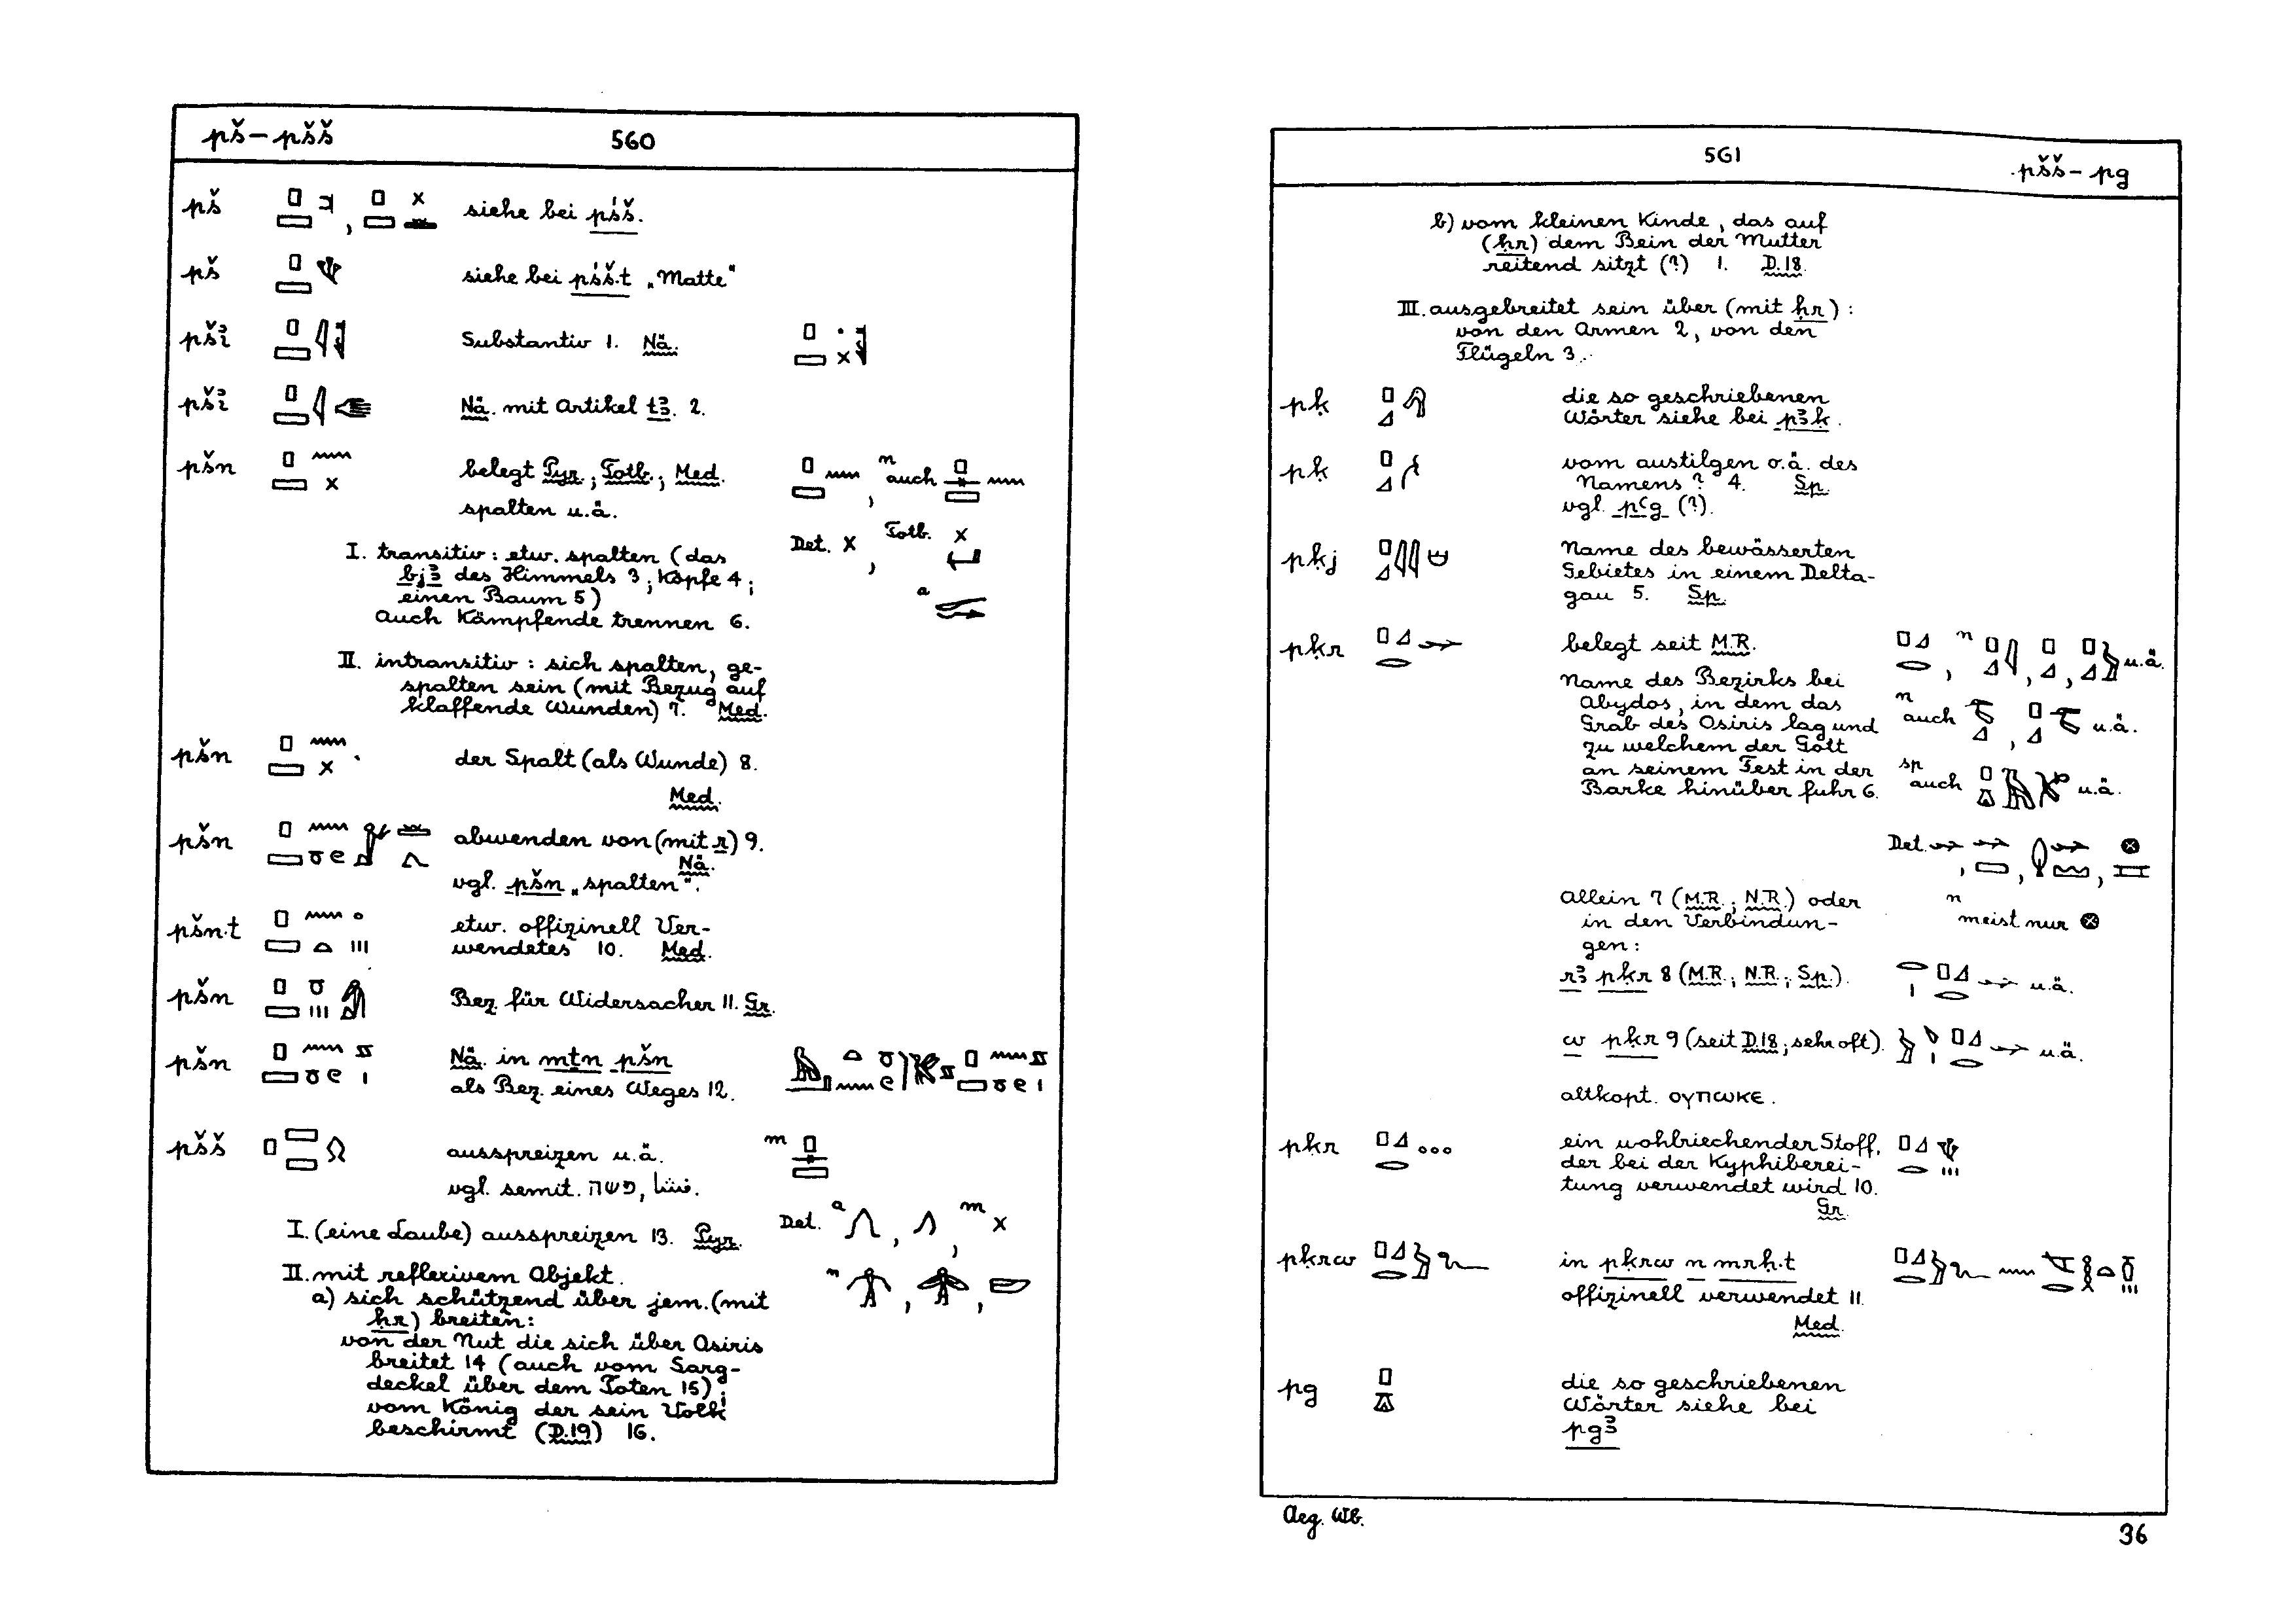 pš – pšš 560
pš siehe bei pśš.
pš siehe bei pśš.t „Matte"
pšꞽ Substantiv 1. Nä.
pšꞽ Nä. mit Artikel tꜣ. 2.
pšn belegt Pyr.; Totb.; Med. n auch
spalten u.ä.
Det. , Totb.
I. transitiv: etw. spalten (das
bjꜣ des Himmels 3; Köpfe 4;
einen Baum 5) a
auch Kämpfende trennen 6.
II. intransitiv: sich spalten, ge-
spalten sein (mit Bezug auf
klaffende Wunden) 7. Med.
pšn der Spalt (als Wunde) 8.
Med.
pšn abwenden von (mit r) 9.
Nä.
vgl. pšn „spalten".
pšn.t etw. offizinell Ver-
wendetes 10. Med.
pšn Bez. für Widersacher 11. Gr.
pšn Nä. in mṯn pšn
als Bez. eines Weges 12.
pšš ausspreizen u.ä. m
vgl. semit. פשה,
I. (eine Laube) ausspreizen 13. Pyr. Det. a , , m
II. mit reflexivem Objekt. n , ,
a) sich schützend über jem. (mit
ḥr) breiten:
von der Nut die sich über Osiris
breitet 14 (auch vom Sarg-
deckel über dem Toten 15);
vom König der sein Volk
beschirmt (D.19) 16.
561 pšš – pg
b) vom kleinen Kinde, das auf
(ḥr) dem Bein der Mutter
reitend sitzt (?) 1. D.18.
III. ausgebreitet sein über (mit ḥr):
von den Armen 2, von den
Flügeln 3.
pḳ die so geschriebenen
Wörter siehe bei pꜣḳ.
pḳ vom austilgen o.ä. des
Namens? 4. Sp.
vgl. pꜥg (?).
pḳj Name des bewässerten
Gebietes in einem Delta-
gau 5. Sp.
pḳr belegt seit M.R. , n , , u.ä.
Name des Bezirks bei
Abydos, in dem das
Grab des Osiris lag und
zu welchem der Gott
an seinem Fest in der
Barke hinüber fuhr 6.
n auch , u.ä.
sp auch u.ä.
Det. , , ,
n meist nur
Allein 7 (M.R.; N.R.) oder
in den Verbindun-
gen:
rꜣ pḳr 8 (M.R.; N.R.; Sp.). u.ä.
w pḳr 9 (seit D.18; sehr oft). u.ä.
altkopt. ⲟⲩⲡⲱⲕⲉ.
pḳr ein wohlriechender Stoff,
der bei der Kyphiberei-
tung verwendet wird 10.
Gr.
pḳrw in pḳrw n mrḥ.t
offizinell verwendet 11.
Med.
pg die so geschriebenen
Wörter siehe bei
pgꜣ
Aeg. Wb. 36